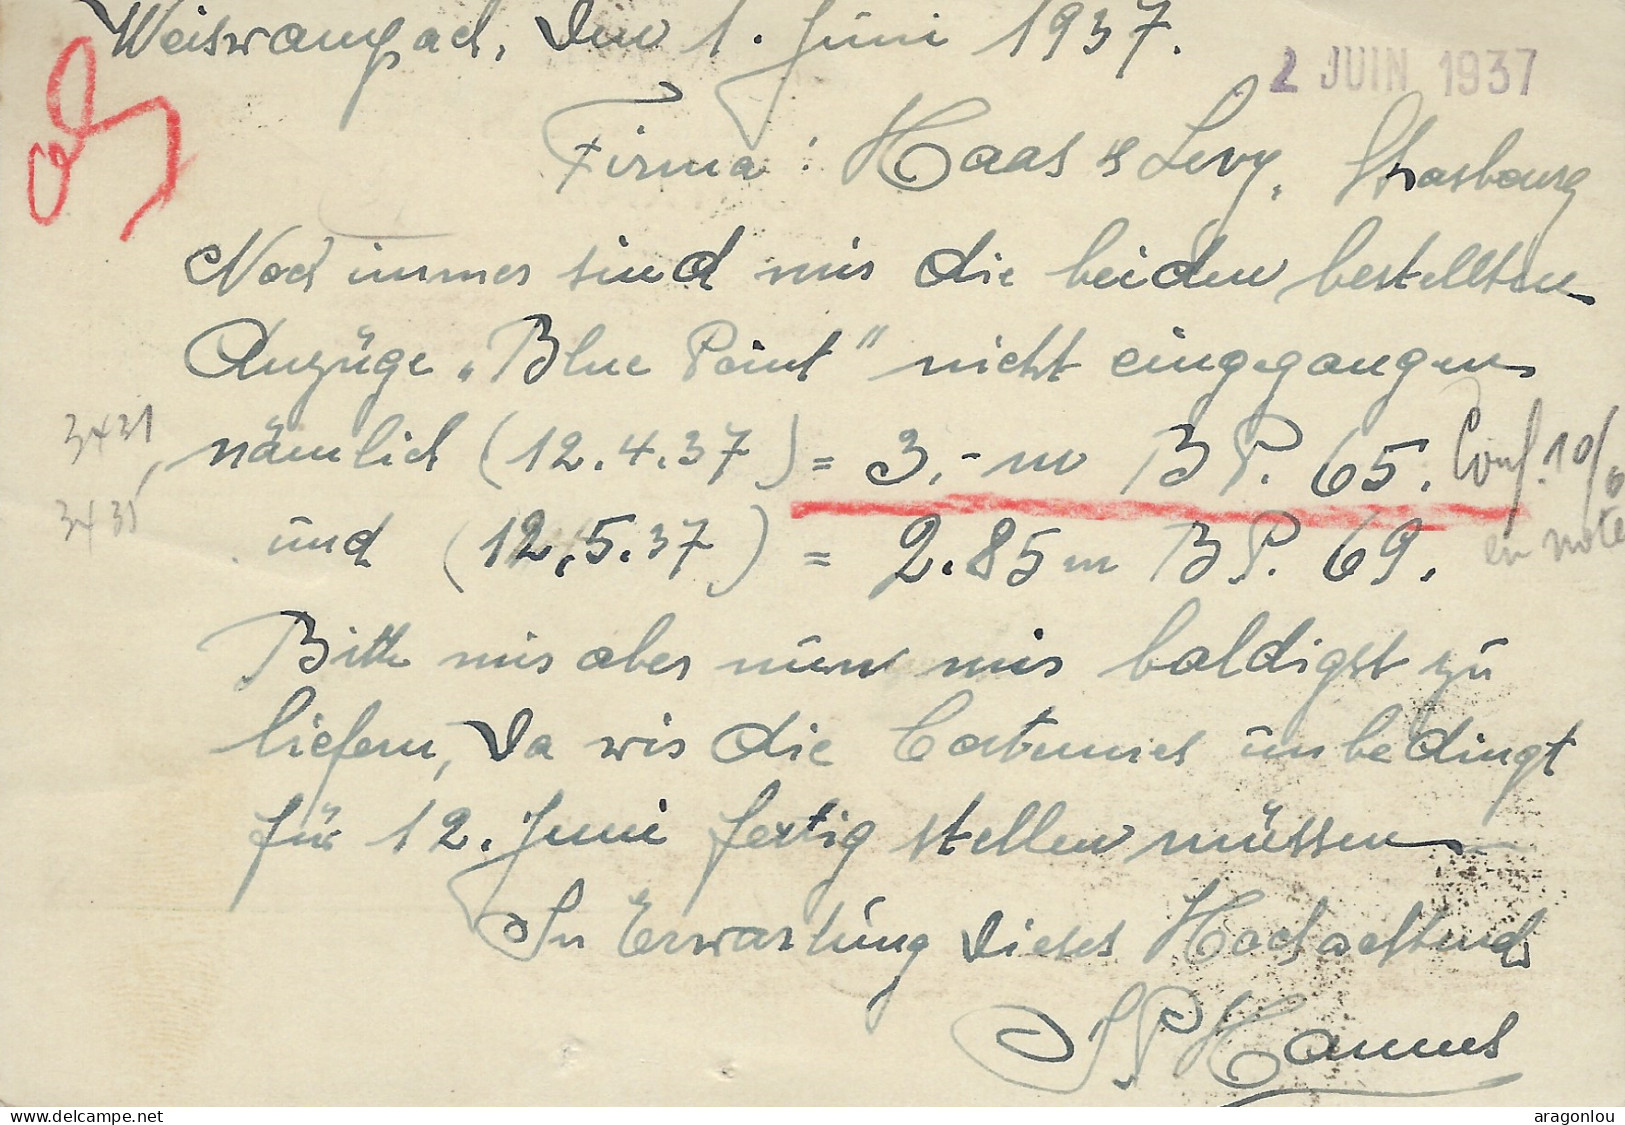 Weiswampach, den 1. Juni 1937.
2 JUIN 1937
Firma: Haas & Levy, Strasbourg
Noch immer sind mir die beiden bestellten
Anzüge „Blue Point" nicht eingegangen
3431, nämlich (12.4.37) = 3.- m BP. 65. Conf. 10/6
3435 und (12.5.37) = 2.85 m BP. 69. en note
Bitte mir aber nun mir baldigst zu
liefern, da wir die Costumes unbedingt
für 12. Juni fertig stellen müssen
In Erwartung dieses Hochachtend
JP Hannes
delcampe.net
aragonlou